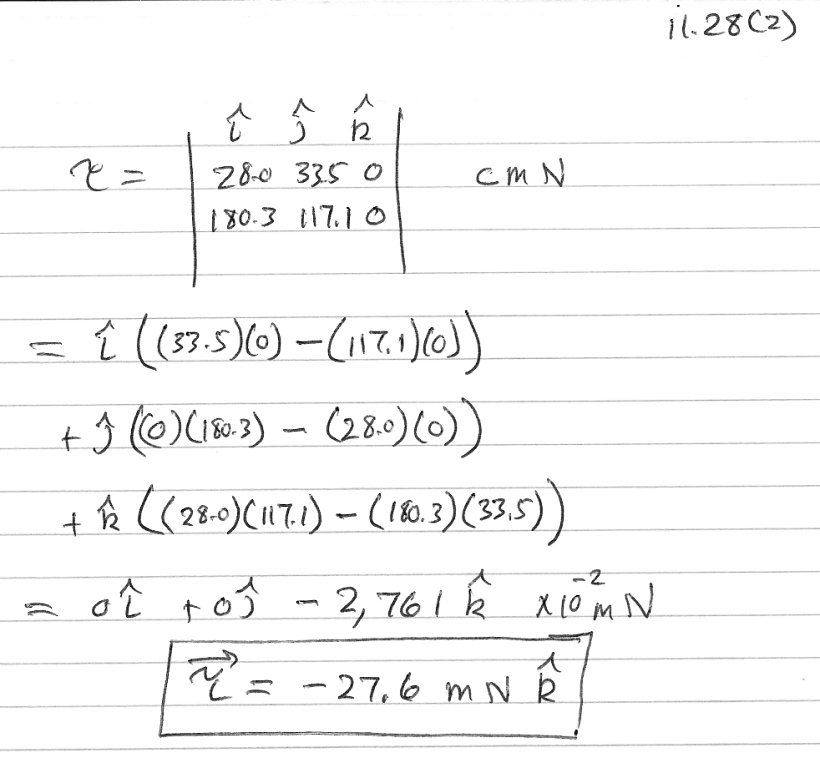 11.28(2)
î ĵ k̂
τ = | 28.0 33.5 0 | cm N
| 180.3 117.1 0 |
= î ((33.5)(0) - (117.1)(0))
+ ĵ ((0)(180.3) - (28.0)(0))
+ k̂ ((28.0)(117.1) - (180.3)(33.5))
= 0î + 0ĵ - 2,761 k̂ x10⁻² m N
τ⃗ = -27.6 m N k̂